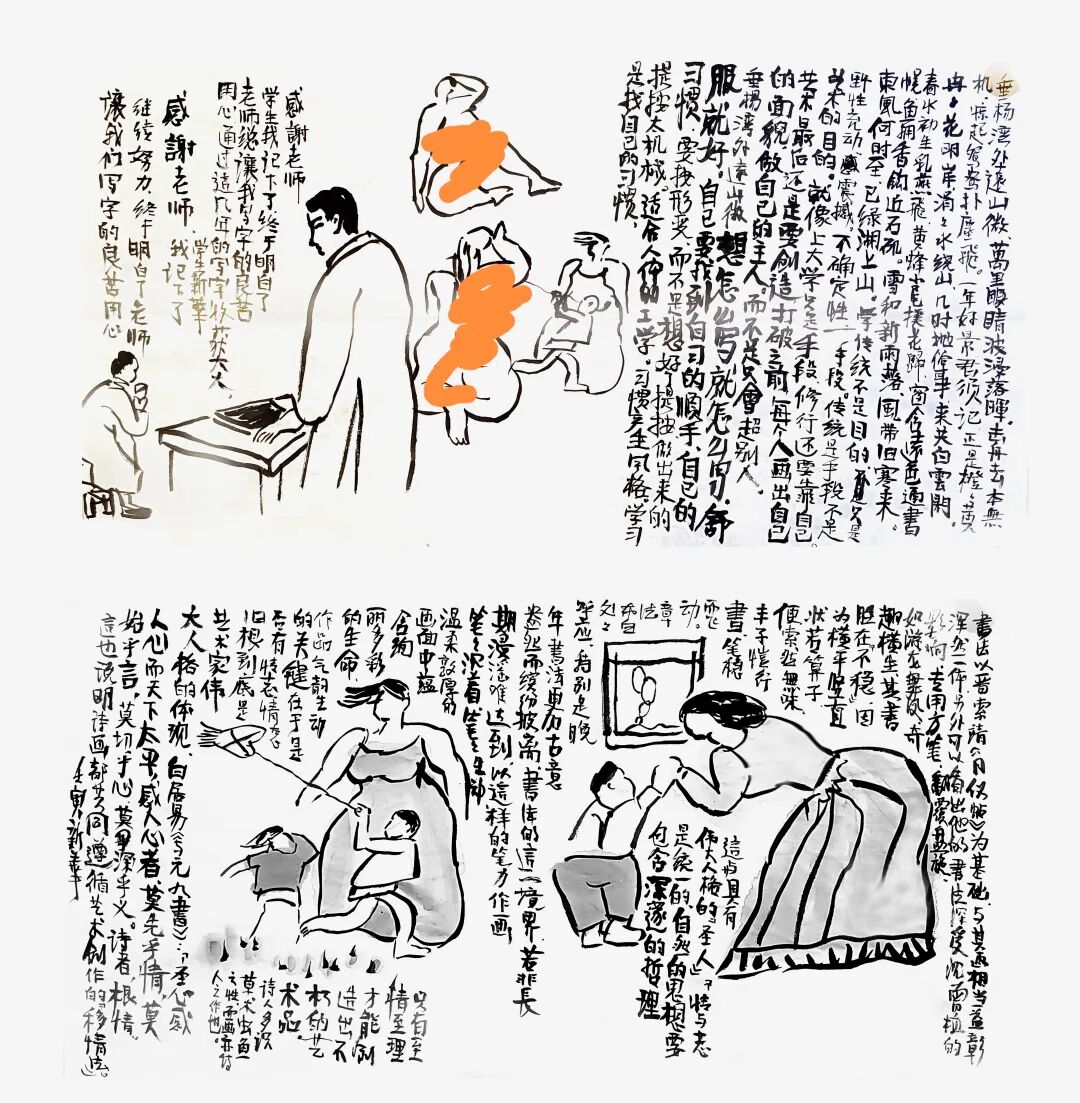 垂杨湾外遠山微,萬里眼睛波浸落暉。去舟去本無
机,惊起鸳鸯扑麈飛。一年好景君须记 正是橙黄
冉冉花明岸涓涓水绕山几时抛俗事来共白雲閑。
春水初生乳燕飛 黄蜂小尾撲花歸 窗含遠色通書
幌魚拥香鈎近石矶。雪和新雨落,風带旧寒来。
東風何时至已绿湖上山。学传统不是目的只是
野性灵动感震撼、不确定性一手段。传统是手段不是
艺术的目的。就像上大学是手段,修行还要靠自己
艺术最后还是要创造打破之前,每个人画出自己
的面貌做自己的主人。而不是只會超别人。
垂楊湾外遠山微 想怎么写就怎么写.舒
服就好。自己要找到自习的順手,自己的
习惯,要找形变,而不是想好了提按做出来的
提按太机械。适合人体的工学。习惯产生风格,学习
是找自己的习惯,
感謝老师
学生我记下了终于明白了
老师总讓我写字的良苦
用心通过这几年的写字收获大大
学生新華
感謝老师 我记下了
继续努力,终于明白了老师
讓我们写字的良苦用心
書法以晋索靖《月仪帖》为基础,与其遥相当益彰
浑然一体,另外可以看出他的書法深受沈曾植的
影响,专用方笔,翻覆盘旋
如游龙舞凤,奇
趣横生其書
胜在不稳,因
为横平竖直
状若算子
便索然無味
丰子恺行
書,笔稳
而
动。章
法
处处
呼应,特别是晚
年書法更加古意
卷然而缤纷披离,書体的這一境界,若非長
期浸淫难达到,以這样的笔力作画
笔笔没有生動
温柔敦厚的
画面中蕴
含绚
丽多彩
的生命
作品气韵生动
的关健在于是
否有特表情意
归根到底是
艺术家伟
大人格的体现,白居易《与元九書》:「圣人感
人心而天下太平感人心者莫先乎情,莫
始乎言,莫切乎心莫深乎义。诗者,根情。
這也说明诗画都共同遵循艺术创作的移情法。
新華
這由具有
伟大人格的“圣人”情与志
是统一的,自然的思想要
包含深邃的哲理
只有至
情至理
才能创
造出不
朽的艺
术品。
诗人多识
草木虫鱼
之性,画亦诗
人之作也。